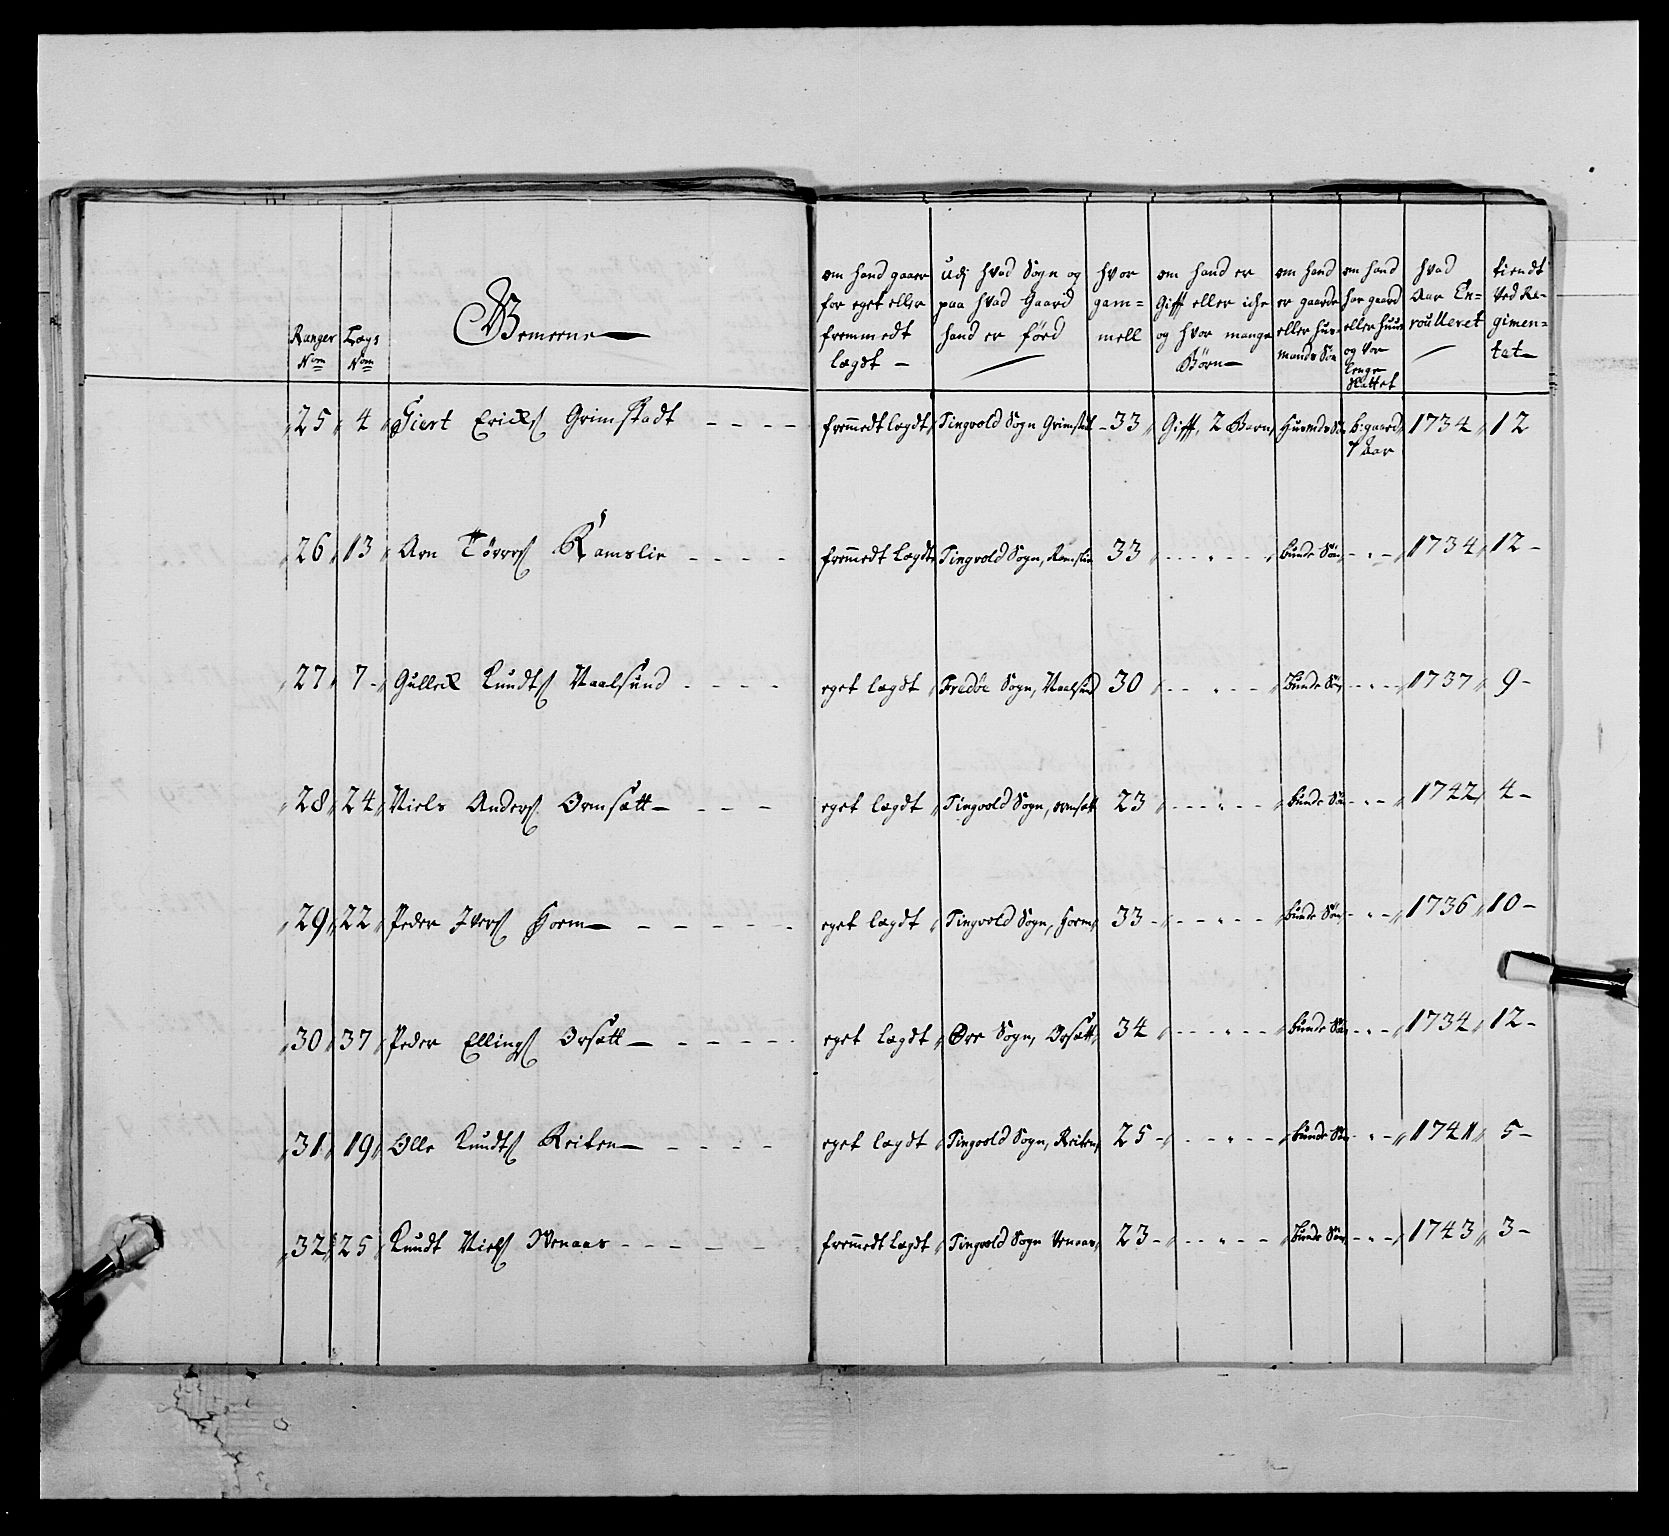 Ranger Nom
Lægs Nom
Gemeene
om hand gaaer for eget eller fremmedt lægdt
Udj hvad Sogn og paa hvad Gaard hand er föed
hvor gammell
om hand er Gifft eller iche og hvor mange Börn
om hand er gaarde eller huusmands Søn
om hand har gaard eller huus og vor lenge
hvad Aar Enroulleret
tiendt Ved Regimentet
25 4 Siert Ericks Grimstadt fremmedt lægdt Tingvold Sogn Grimstat 33 Gifft, 2 Barn Husmds Søn b: gaard 7 Aar 1734 12
26 13 Arn Törres Ramslie fremmedt lægdt Tingvold Sogn, Ramslie 33 bunde Søn 1734 12
27 7 Gullech Knudts Naalsund eget lægdt Fredöe Sogn, Naalsund 30 Bunde Søn 1737 9
28 24 Niels Anders Ormsætt eget lægdt Tingvold Sogn, ormsætt 23 bunde Søn 1742 4
29 22 Peder Ivers Horm eget lægdt Tingvold Sogn, Horm 33 bunde Søn 1736 10
30 37 Peder Ellings Orsætt eget lægdt Øre Sogn, Orsætt 34 bunde Søn 1734 12
31 19 Olle Knudts Reiten eget lægdt Tingvold Sogn, Reiten 25 bunde Søn 1741 5
32 25 Knudt Niels Wenaas fremmedt lægdt Tingvold Sogn Venaas 23 Bunde Søn 1743 3